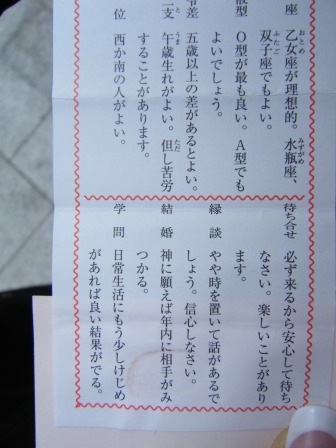 座 乙女座が理想的。水瓶座、
双子座でもよい。
型 O型が最も良い。A型でも
よいでしょう。
差 五歳以上の差があるとよい。
支 午歳生れがよい。但し苦労
することがあります。
位 西か南の人がよい。
待ち合せ 必ず来るから安心して待ち
なさい。楽しいことがあり
ます。
縁談 やや時を置いて話があるで
しょう。信心しなさい。
結婚 神に願えば年内に相手がみ
つかる。
学問 日常生活にもう少しけじめ
があれば良い結果がでる。